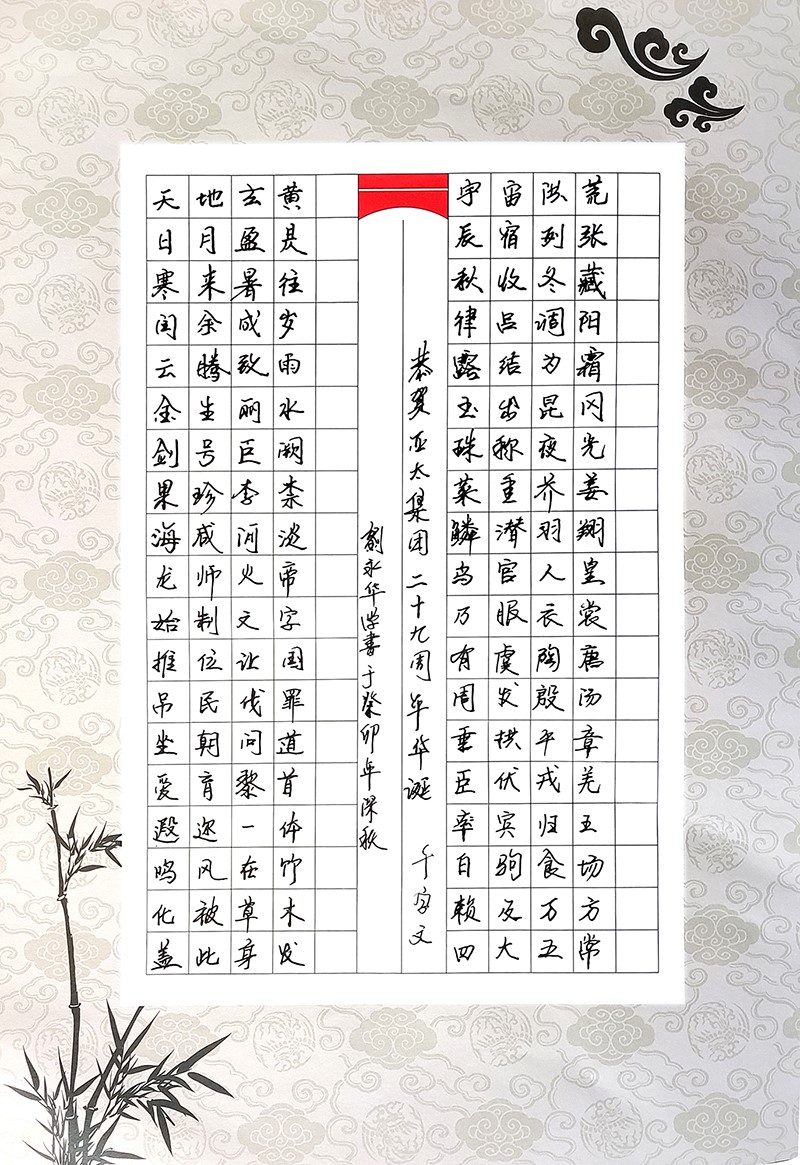 天地玄黄 宇宙洪荒
日月盈昃 辰宿列张
寒来暑往 秋收冬藏
闰余成岁 律吕调阳
云腾致雨 露结为霜
金生丽水 玉出昆冈
剑号巨阙 珠称夜光
果珍李柰 菜重芥姜
海咸河淡 鳞潜羽翔
龙师火帝 鸟官人皇
始制文字 乃服衣裳
推位让国 有虞陶唐
吊民伐罪 周发殷汤
坐朝问道 垂拱平章
爱育黎首 臣伏戎羌
遐迩一体 率宾归王
鸣凤在竹 白驹食场
化被草木 赖及万方
盖此身发 四大五常
恭贺亚太集团二十九周年华诞 千字文
劉永华学书于癸卯年深秋